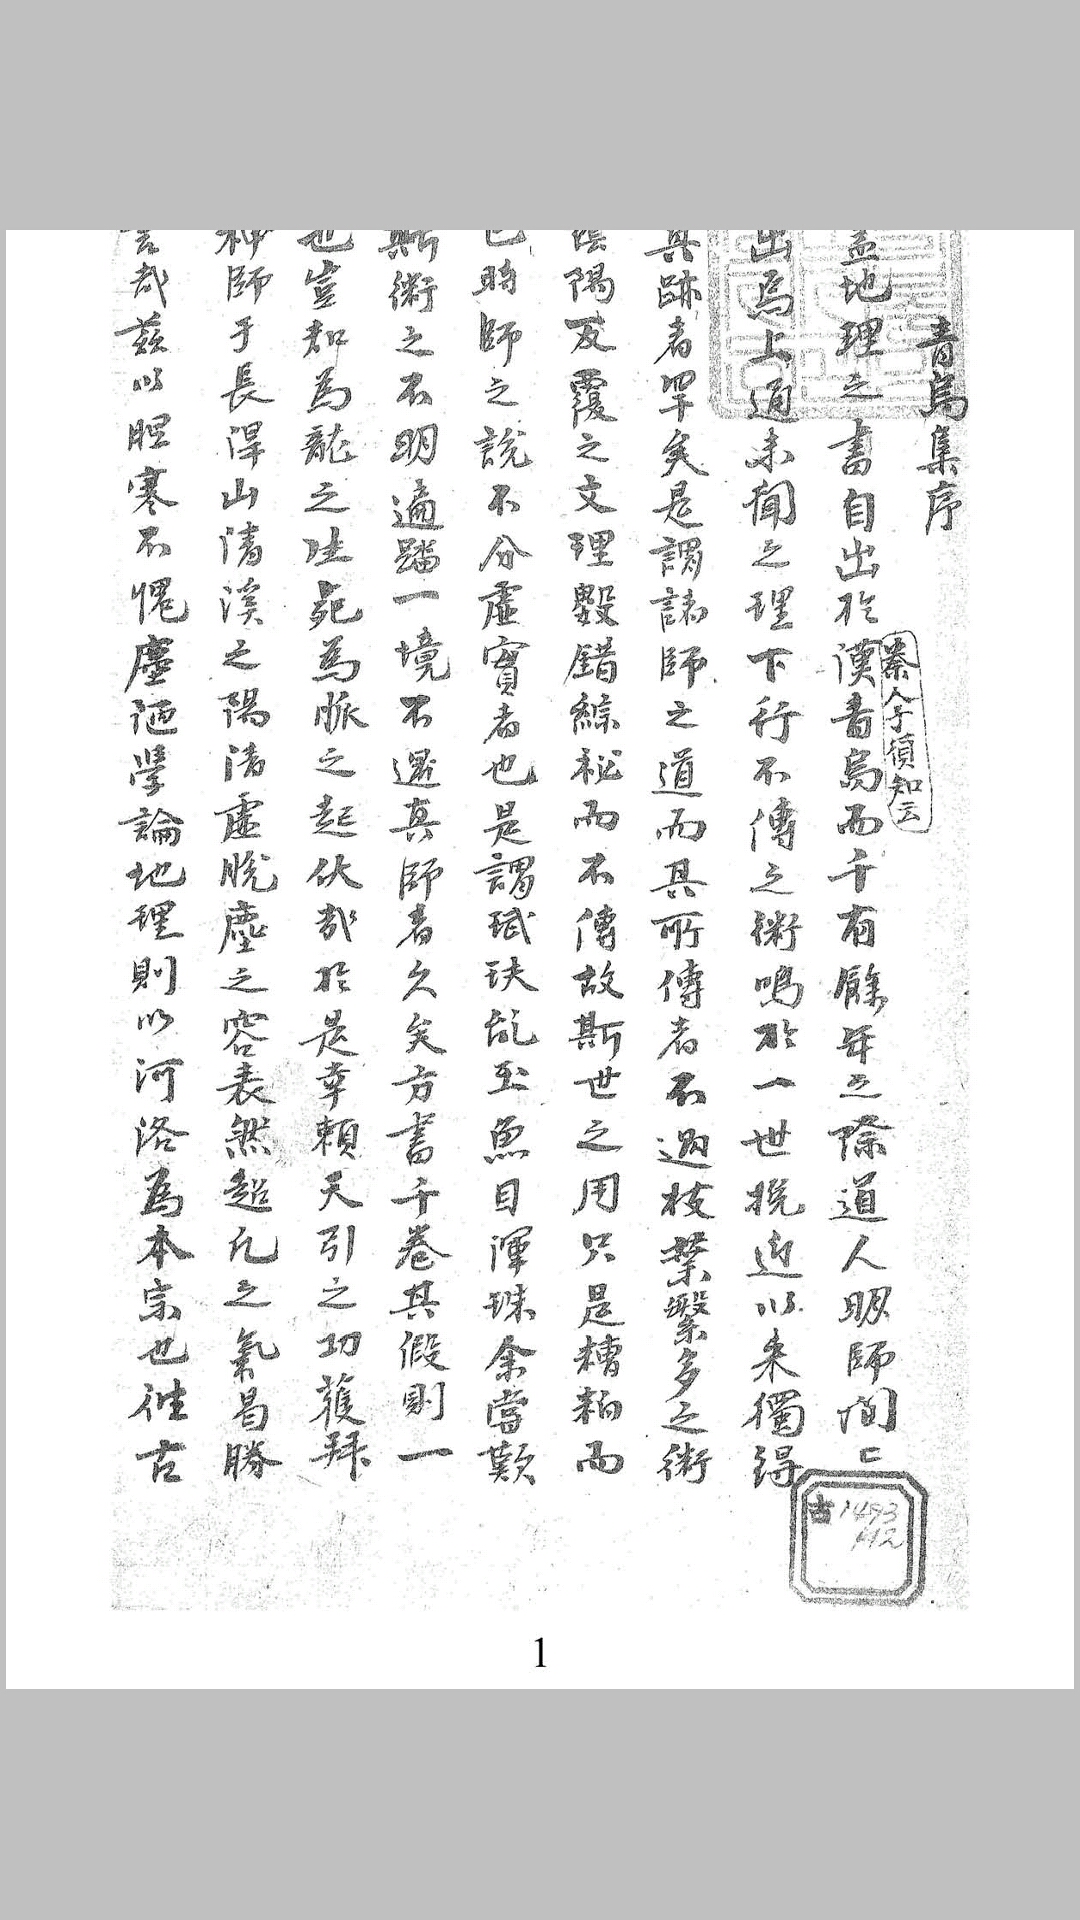 青烏集序
蓋地理之書自出於漢青烏而千有餘年之際道人明師間〻
秦人子須知云
出焉上通未聞之理下行不傳之術鳴於一世挽近以来獨得
其跡者罕矣是謂諸師之道而其所傳者不過枝葉繁多之術
陰陽反覆之文理數錯綜秘而不傳故斯世之用只是糟粕而
已時師之說不分虛實者也是謂珷玞乱玉魚目渾珠余嘗歎
斯術之不明遍踏一境不遇真師者久矣方書千卷其假則一
也豈知為龍之生死為脈之起伏哉於是幸賴天引之功獲拜
神師于長淂山清溪之陽清虛脫塵之容表然超凡之氣曷勝
言哉茲以胆寒不愧塵陋學論地理則以河洛為本宗也徃古
古1493
1